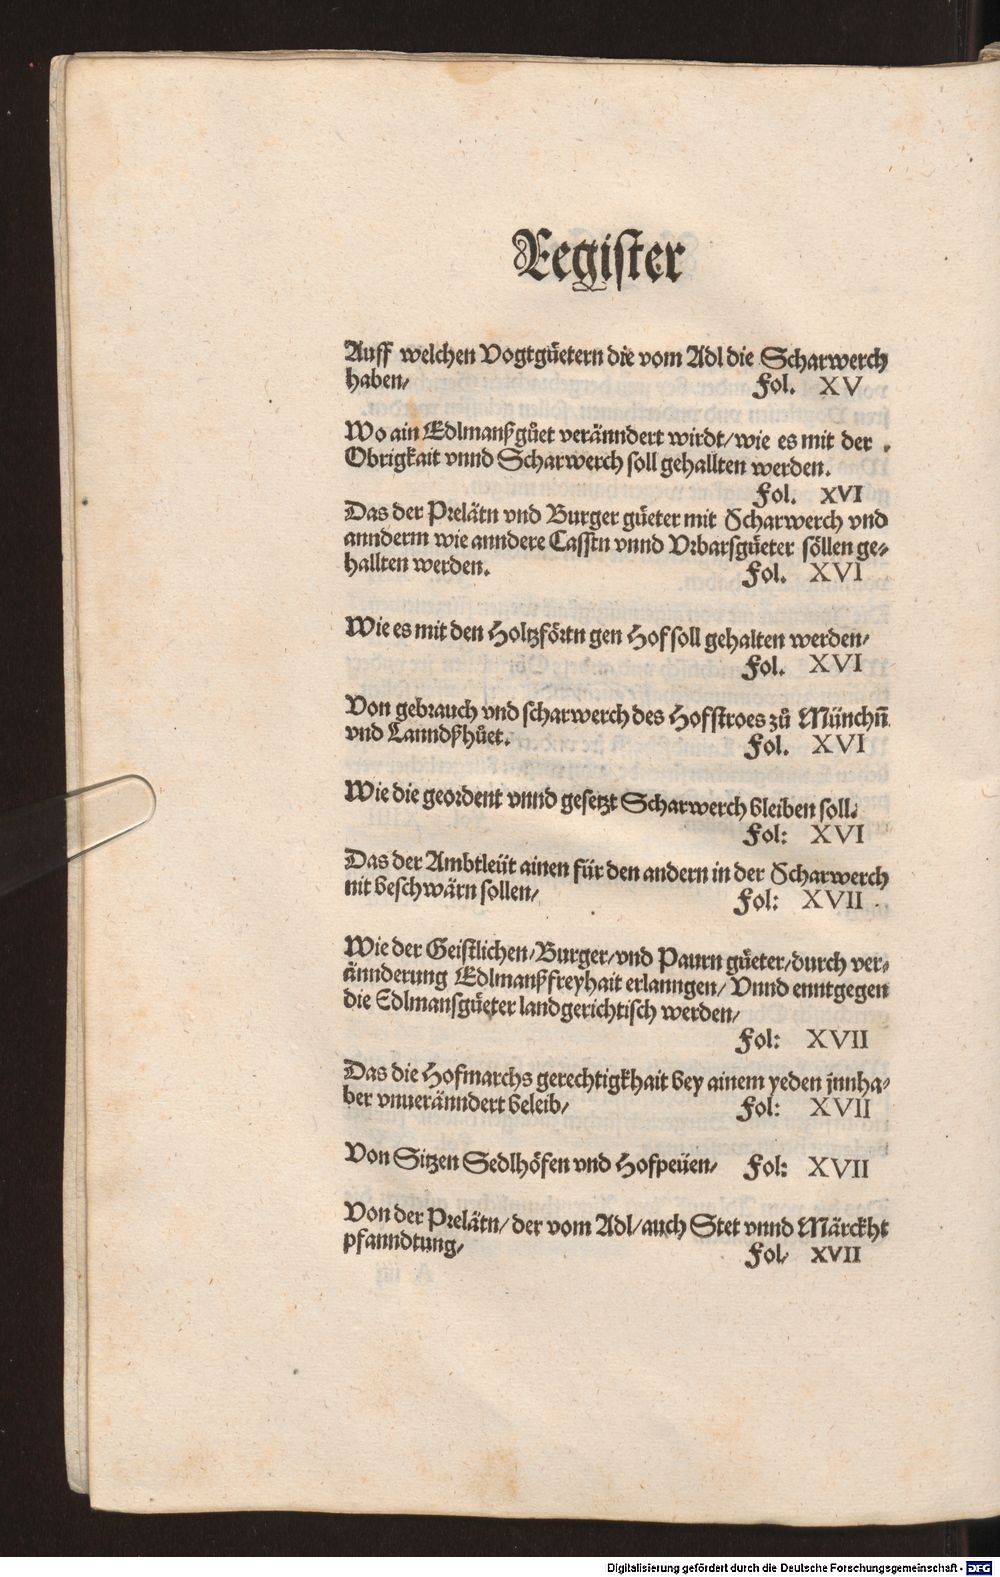 Register
Auff welchen Vogtgüetern die vom Adl die Scharwerch
haben/ Fol. XV
Wo ain Edlmanßgůet veränndert wirdt/wie es mit der
Obrigkait vnnd Scharwerch soll gehallten werden.
Fol. XVI
Das der Prelätn vnd Burger güeter mit Scharwerch vnd
annderm wie anndere Casstn vnnd Vrbarsgüeter söllen ge-
hallten werden. Fol. XVI
Wie es mit den Holtzförtn gen Hof soll gehalten werden/
Fol. XVI
Von gebrauch vnd scharwerch des Hofstroes zů Münchn̄
vnd Lanndßhůet. Fol. XVI
Wie die geordent vnnd gesetzt Scharwerch bleiben soll.
Fol: XVI
Das der Ambtleüt ainen für den andern in der Scharwerch
nit beschwärn sollen/ Fol: XVII
Wie der Geistlichen/Burger/vnd Paurn güeter/durch ver-
ännderung Edlmanßfreyhait erlanngen/ Vnnd enntgegen
die Edlmansgüeter landgerichtisch werden/
Fol: XVII
Das die Hofmarchs gerechtigkhait bey ainem yeden jnnha-
ber vnueränndert beleib/ Fol: XVII
Von Sitzen Sedlhöfen vnd Hofpeüen/ Fol: XVII
Von der Prelätn/ der vom Adl/ auch Stet vnnd Märckht
pfanndtung/ Fol/ XVII
Digitalisierung gefördert durch die Deutsche Forschungsgemeinschaft - DFG